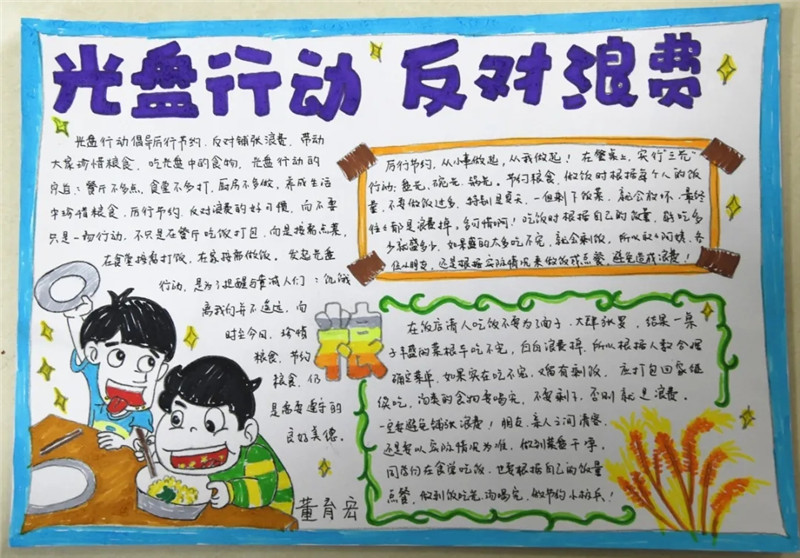 光盘行动 反对浪费
光盘行动倡导厉行节约，反对铺张浪费，带动
大家珍惜粮食，吃光盘中的食物，光盘行动的
宗旨：餐厅不多点，食堂不多打，厨房不多做，养成生活
中珍惜粮食，厉行节约，反对浪费的好习惯，而不要
只是一场行动，不只是在餐厅吃饭打包，而是按需点菜，
在食堂按需打饭，在家按需做饭。发起光盘
行动，是为了提醒与告诫人们：饥饿
离我们并不遥远，而
时至今日，珍惜
粮食，节约
粮食，仍
是需要遵守的
良好美德。
粮
厉行节约，从小事做起，从我做起！在餐桌上，实行"三光"
行动：盘光，碗光，锅光。节约粮食，做饭时根据每个人的饭
量，不要做饭过多，特别是夏天，一但剩下饭菜，就会放坏，最终
往往都是浪费掉，多可惜啊！吃饭时根据自己的饭量，能吃多
少就盛多少，如果盛的太多吃不完，就会剩饭，所以
小朋友，还是根据实际情况来做饭或点餐，避免造成浪费！
在饭店请人吃饭不要为了面子，大肆张罗，结果一桌
子丰盛的菜根本吃不完，白白浪费掉，所以根据人数合理
确定菜单，如果实在吃不完，又留有剩饭，应打包回家继
续吃，汤类的食物要喝完，不要剩了，否则就是浪费。
一定要避免铺张浪费！朋友、亲人之间请客，
还是要以实际情况为准，做到菜盘干净，
同学们在食堂吃饭，也要根据自己的饭量
点餐，做到饭吃光，汤喝完，做节约小标兵！
董育宏